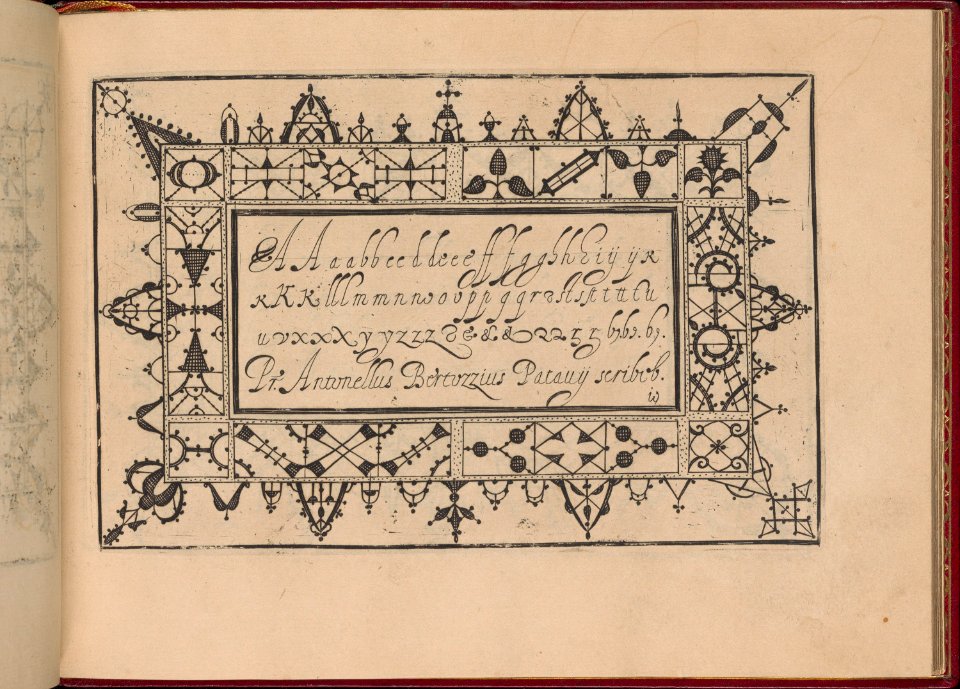 A A a a b b c c d d e e e f f f g g g h h h i y ij y k
k K K l l l m m n n o o v p p q q q r s A s st t tt t u
u v x x X y y z z z & & & b9. b9.
Pr. Antonellus Bertozzius Patauij scribeb.